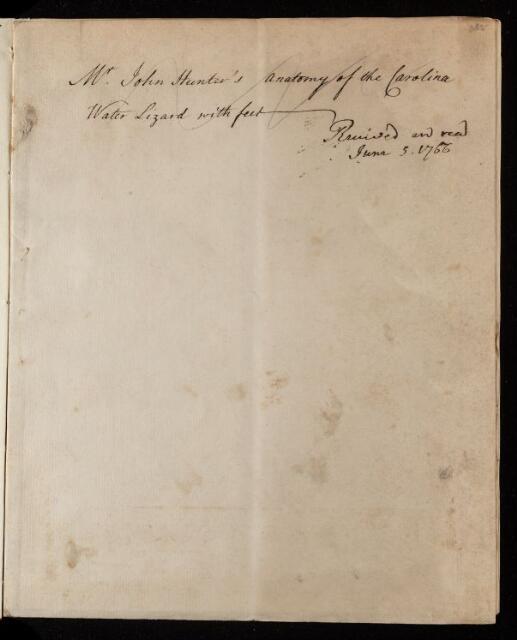 Mr. John Hunter's anatomy of the Carolina
Water Lizard with feet
Received and read
June 5. 1766